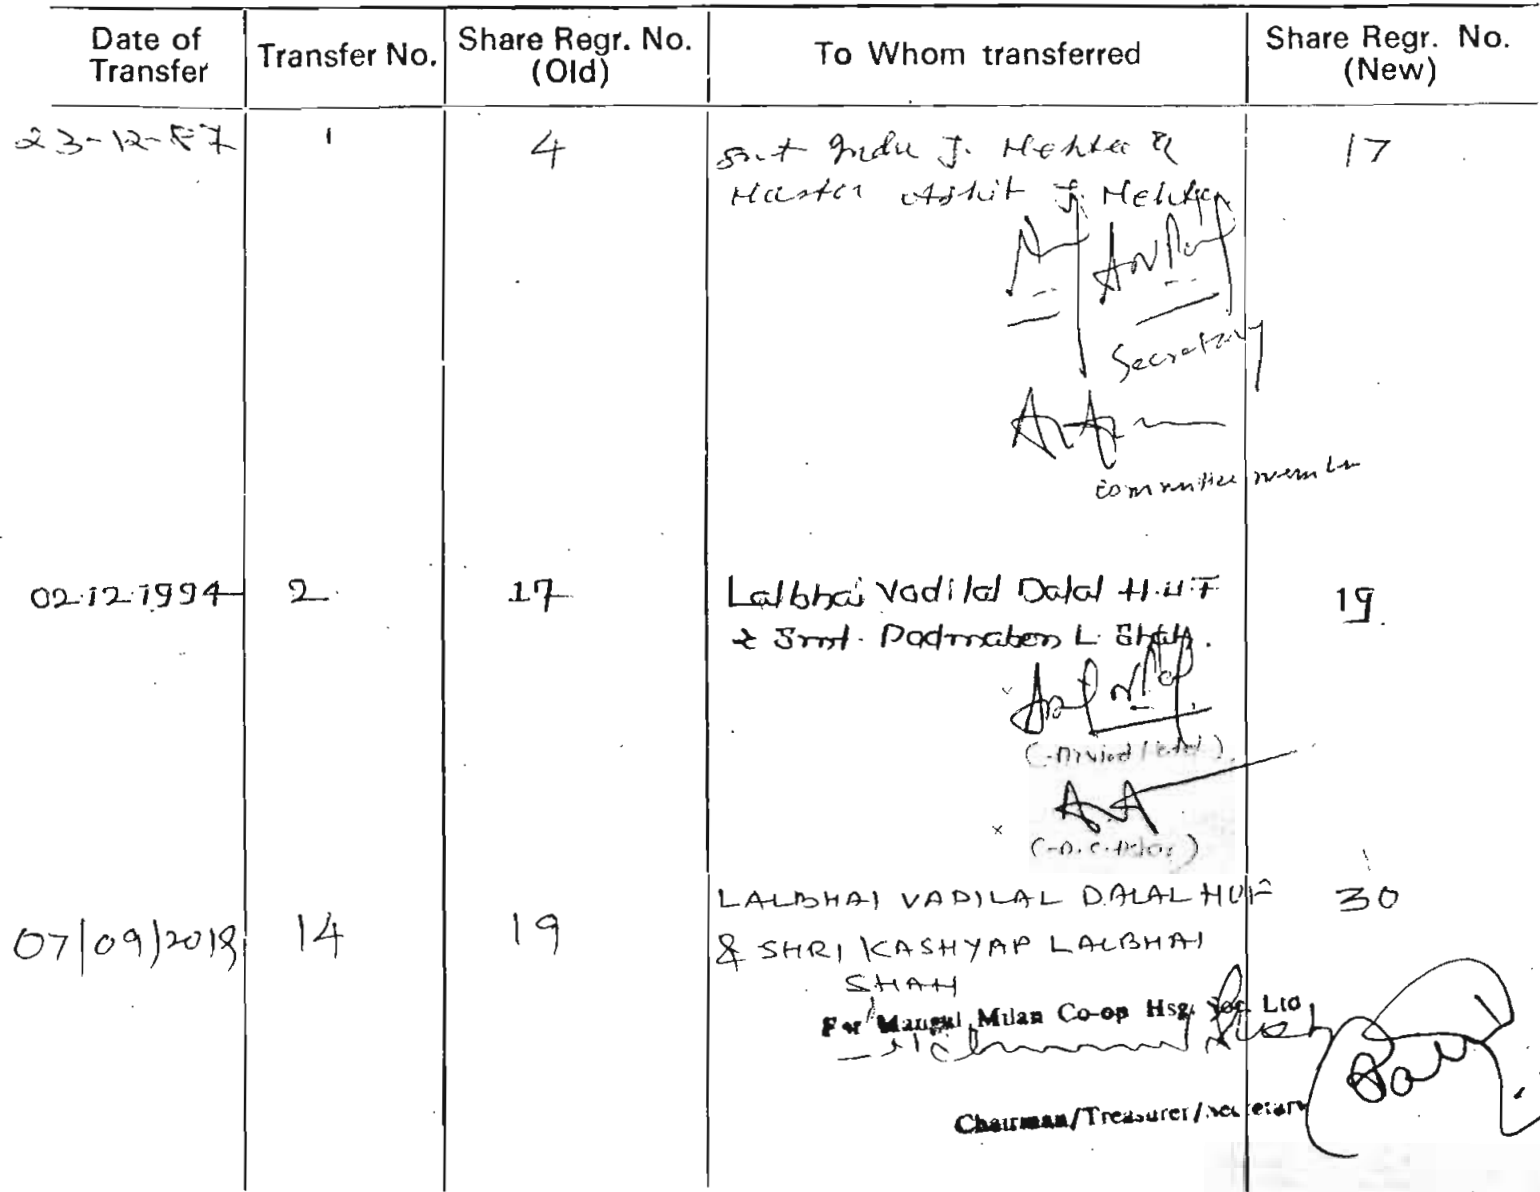 Date of Transfer Transfer No. Share Regr. No. (Old) To Whom transferred Share Regr. No. (New)
23-12-87 1 4 Smt Indu J. Mehta & 17
Master Ashit J. Mehta
Secretary
committee member
02.12.1994 2. 17 Lalbhai Vadilal Dalal H.U.F 19.
& Smt. Padmaben L. Shah.
LALBHAI VADILAL DALAL HUF 30
07/09/2018 14 19 & SHRI KASHYAP LALBHAI
SHAH
For Mangal Milan Co-op Hsg. Soc. Ltd
Chairman/Treasurer/Secretary